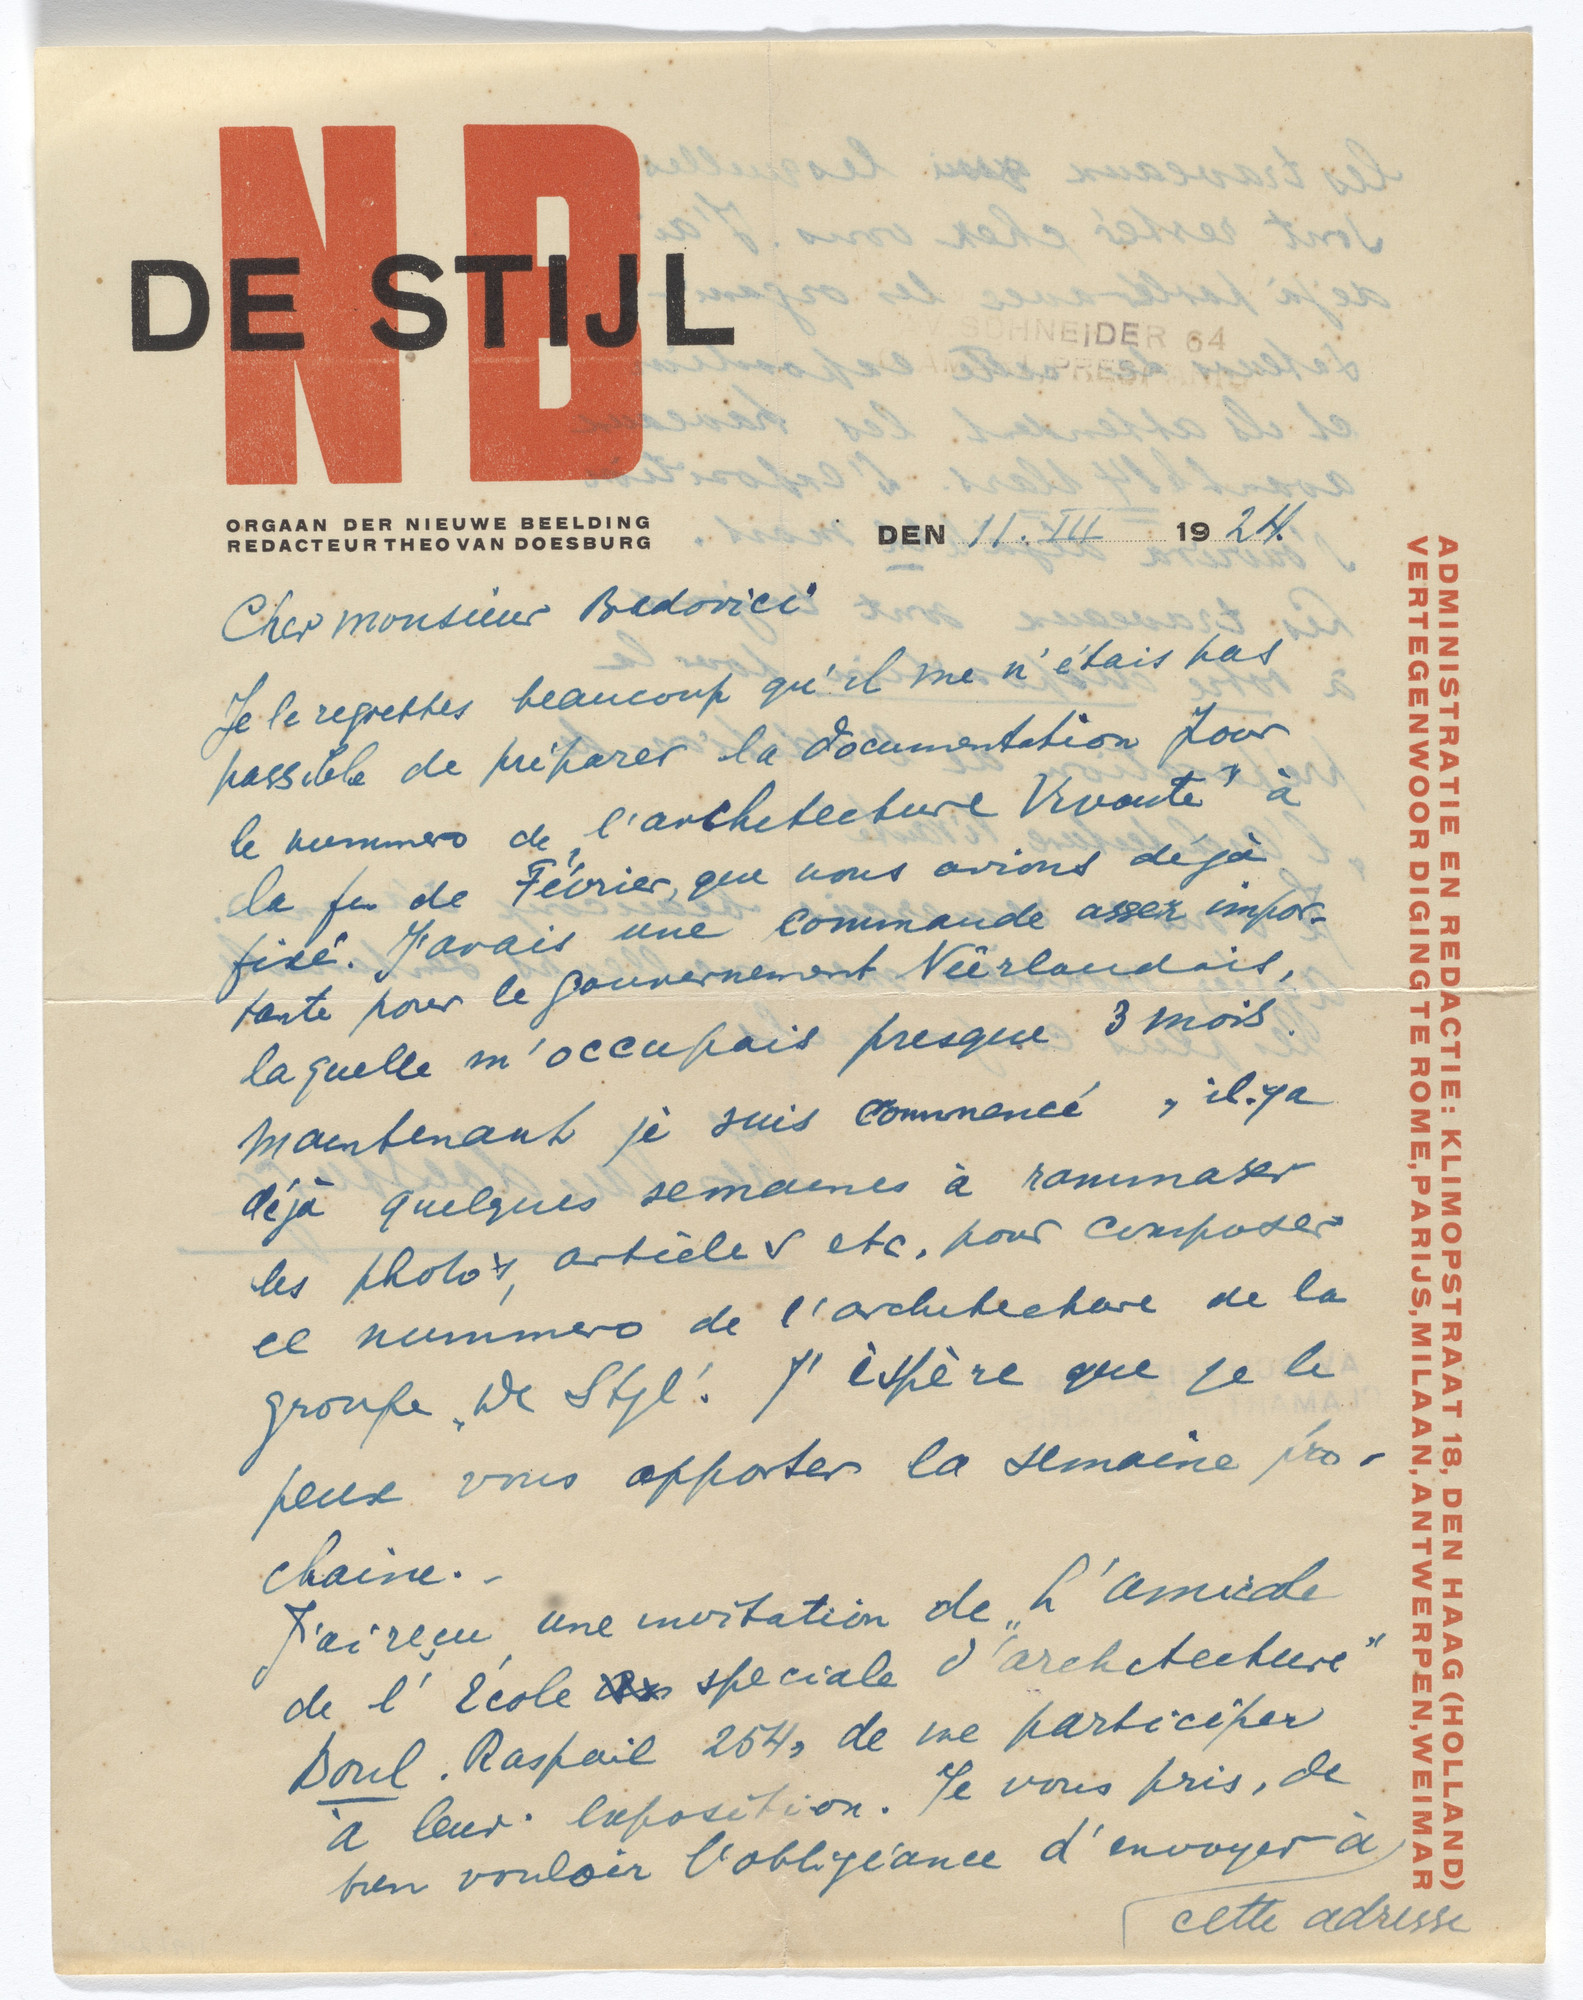 NB
DE STIJL
ORGAAN DER NIEUWE BEELDING
REDACTEUR THEO VAN DOESBURG
DEN 11.III 1924.
Cher monsieur Badovici
Je le regrettes beaucoup qu'il me n'étais pas
possible de préparer la documentation pour
le nummero de „l'architecture Vivante" à
la fin de Février, que nous avions déjà
fixé. J'avais une commande assez impor-
tante pour le gouvernement Néèrlandais,
laquelle m'occupais presque 3 mois.
Maintenant je suis commencé, il.ya
déjà quelques semaines à rammaser
les photo's, articles etc. pour composer
ce nummero de l'architecture de la
groupe „De Styl". J'éspère que je le
peux vous apporter la semaine pro-
chaine. -
J'ai reçu une invitation de „L'amicale
de l'École speciale d'architecture"
Boul. Raspail 254, de me participer
à leur exposition. Je vous pris, de
bien vouloir l'obligéance d'envoyer à
cette adresse
ADMINISTRATIE EN REDACTIE: KLIMOPSTRAAT 18, DEN HAAG (HOLLAND)
VERTEGENWOORDIGING TE ROME, PARIJS, MILAAN, ANTWERPEN, WEIMAR
SCHNEIDER 64